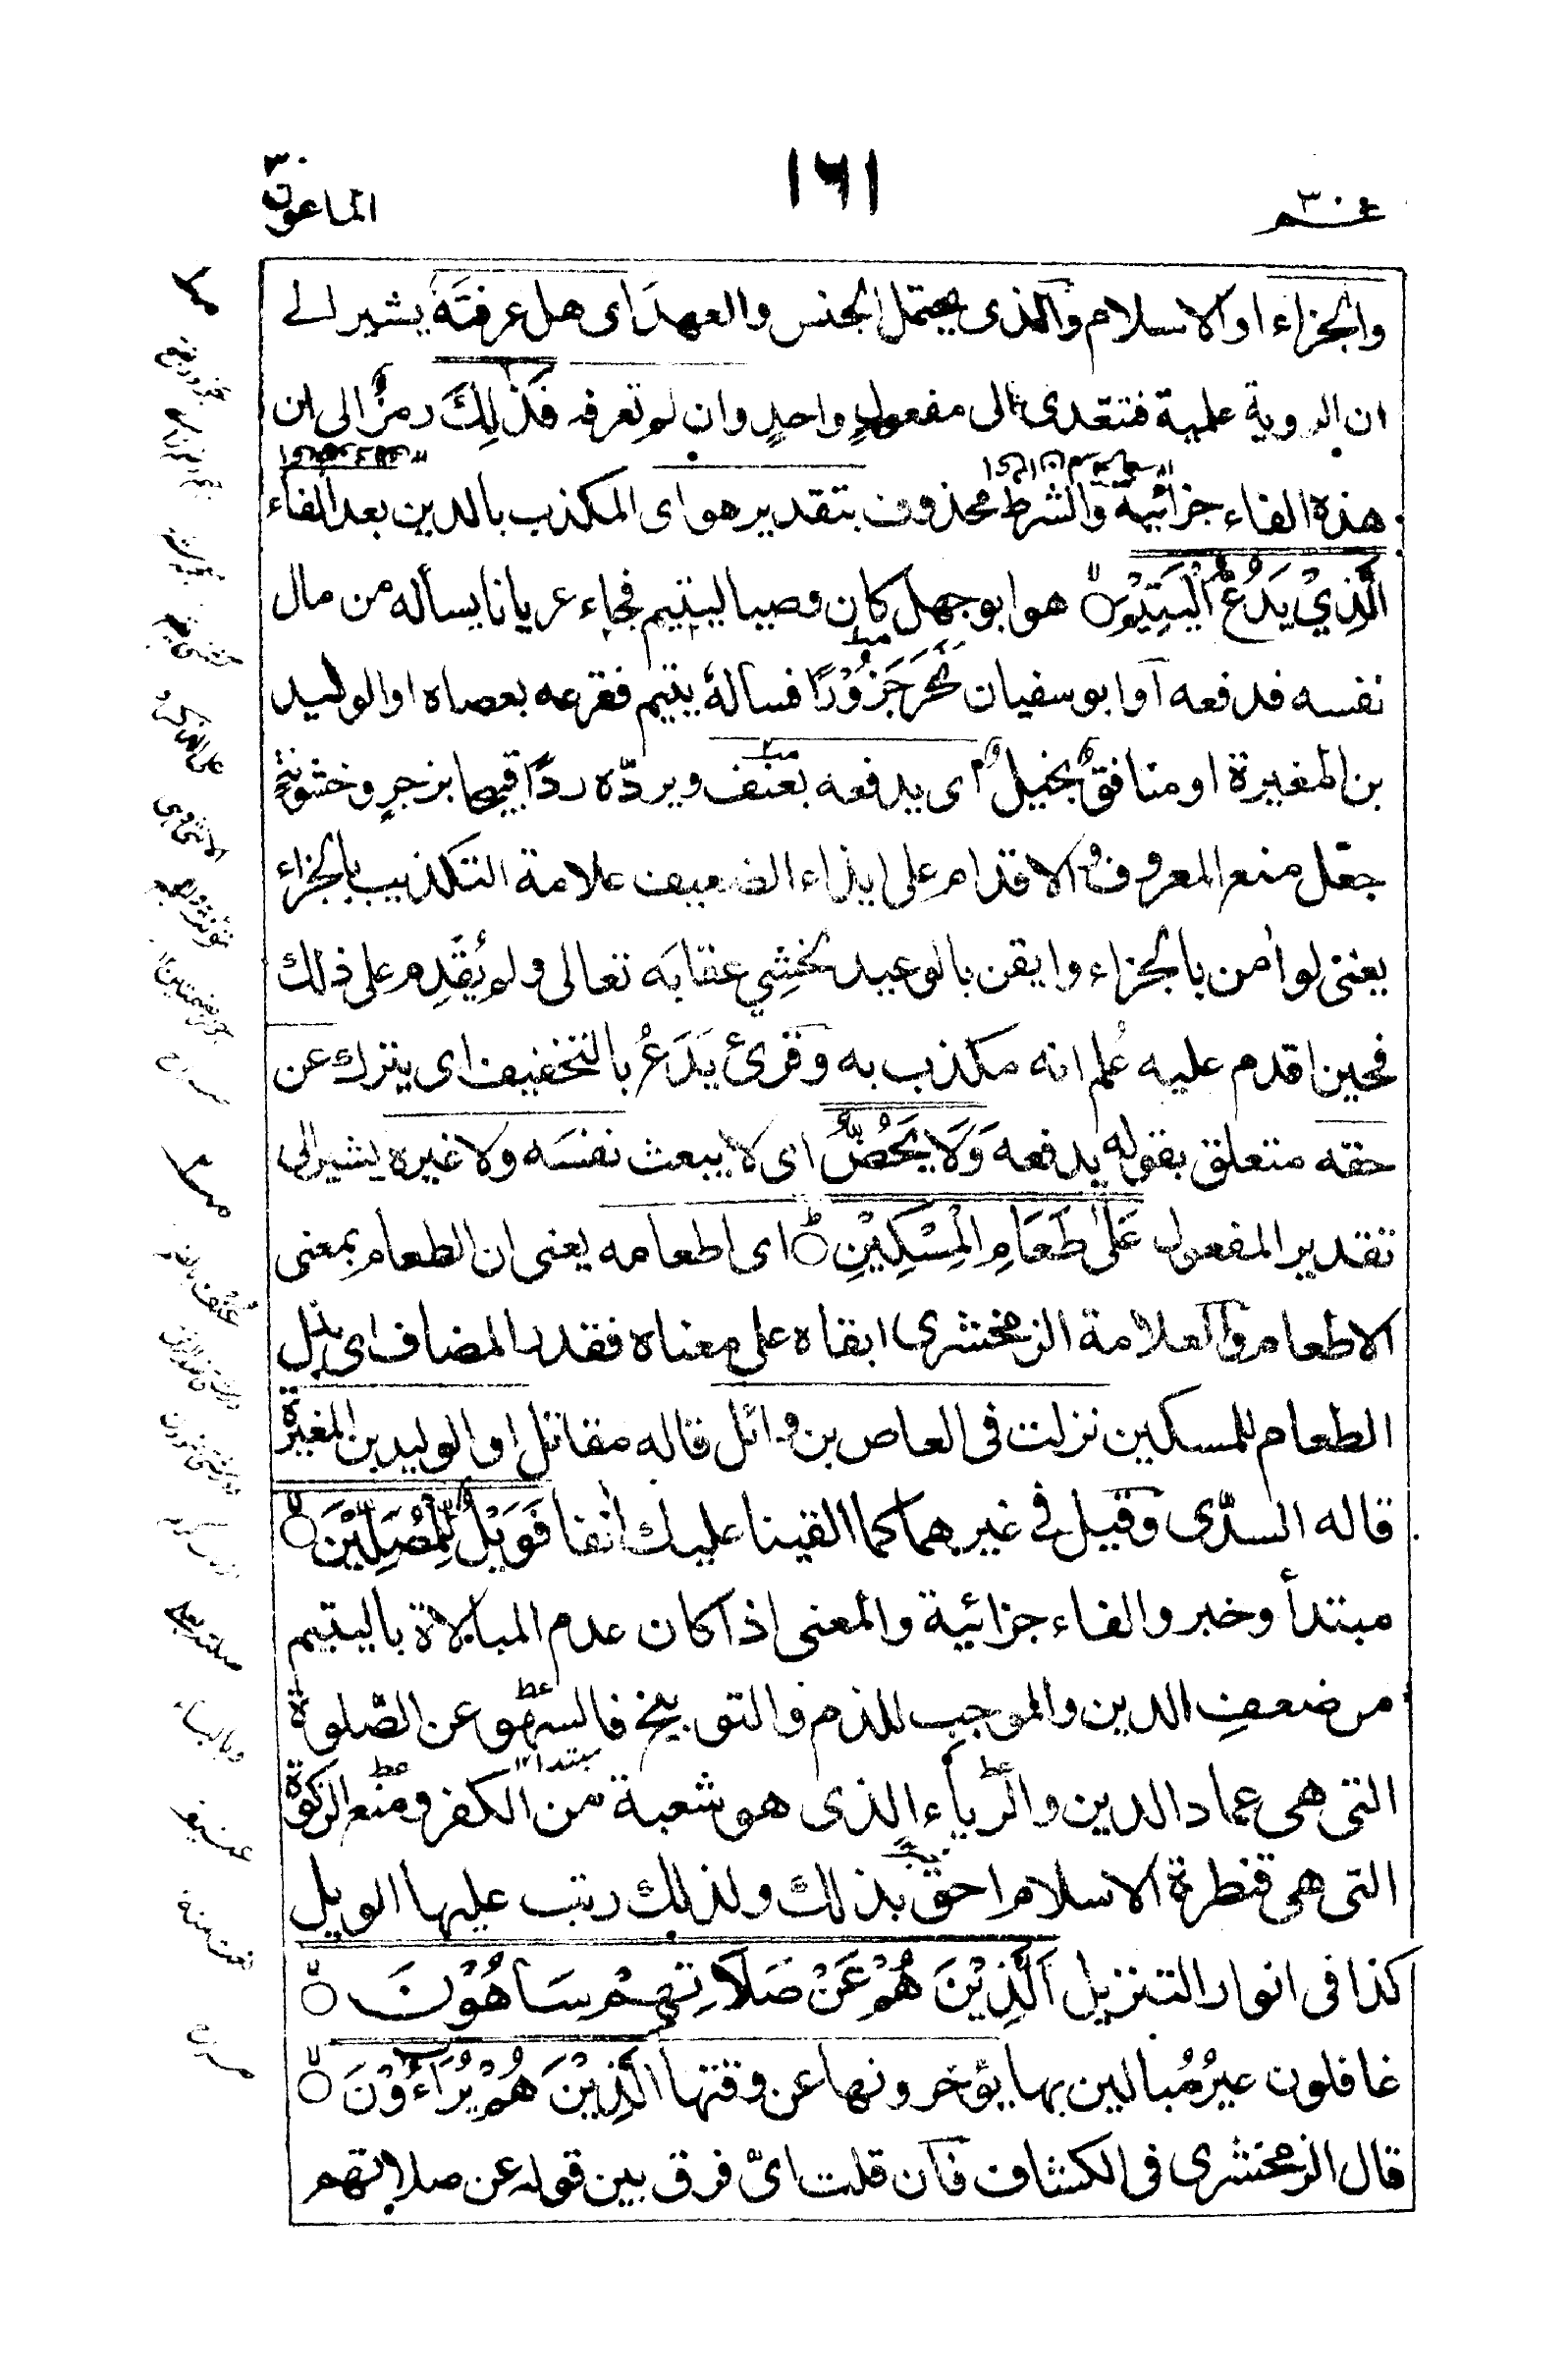 عم ٣٠
١٦١
الماعون
والجزاء او الاسلام والذى يحتمل الجنس والعهد اى هل عرفتَه يشير الى
ان الروية علمية فتتعدى الى مفعولٍ واحدٍ وان لم تعرفه فَذٰلِكَ رمزٌ الى ان
هذه الفاء جزائيّة والشرط محذوف بتقدير هو اى المكذب بالدين بعد الفاء
الَّذِيْ يَدُعُّ الْيَتِيْمَ هو ابو جهل كان وصيا ليتيم فجاء عريانا يسأله من مال
نفسه فدفعه او ابو سفيان نَحَرَ جَزُوْرًا فسالهٗ يتيم فقرعه بعصاه او الوليد
بن المغيرة او منافقٌ بخيلٌ اى يدفعه بعنف ويردّه ردًّا قبيحا بزجرٍ وخشونةٍ
جعل منع المعروف والاقدام على ايذاء الضعيف علامة التكذيب بالجزاء
يعنى لو اٰمن بالجزاء وايقن بالوعيد لخشِي عقابَه تعالى ولم يُقدِم على ذلك
فحين اقدم عليه عُلم انه مكذب به وقرئ يَدَعُ بالتخفيف اى يترك عن
حقه متعلق بقوله يدفعه وَلَا يَحُضُّ اى لا يبعث نفسَه ولا غيره يشير الى
تقدير المفعول عَلٰى طَعَامِ الْمِسْكِيْنِ اى اطعامه يعنى ان الطعام بمعنى
الاطعام والعلامة الزمخشرى ابقاه على معناه فقدر المضاف اى بذل
الطعام للمسكين نزلت فى العاص بن وائل قاله مقاتل او الوليد بن المغيرة
قاله السدّى وقيل فى غيرهما كما القينا عليك اٰنفا فَوَيْلٌ لِّلْمُصَلِّيْنَ
مبتدأ وخبر والفاء جزائية والمعنى اذا كان عدم المبالاة باليتيم
من ضعفِ الدين والموجب للذم والتوبيخ فالسهو عن الصّلوة
التى هى عماد الدين والرّياء الذى هو شعبة من الكفر ومنع الزكوة
التى هى قنطرة الاسلام احق بذلك ولذلك رتب عليها الويل
كذا فى انوار التنزيل اَلَّذِيْنَ هُمْ عَنْ صَلَاتِهِمْ سَاهُوْنَ
غافلون غيرُ مُبالين بها يؤخرونها عن وقتها الَّذِيْنَ هُمْ يُرَاءُوْنَ
قال الزمخشرى فى الكشاف فان قلت اىّ فرق بين قوله عن صلاتهم